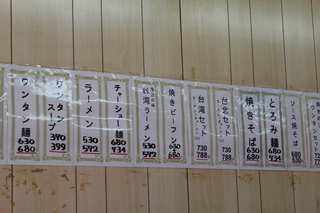 ワンタン麺
630
680
ワンタン
スープ
370
399
ラーメン
530
572
チャーシュー麺
680
734
台湾ラーメン
530
572
焼きビーフン
630
680
台湾セット
730
788
台北セット
730
788
焼きそば
630
680
とろみ麺
680
734
ソース焼そば